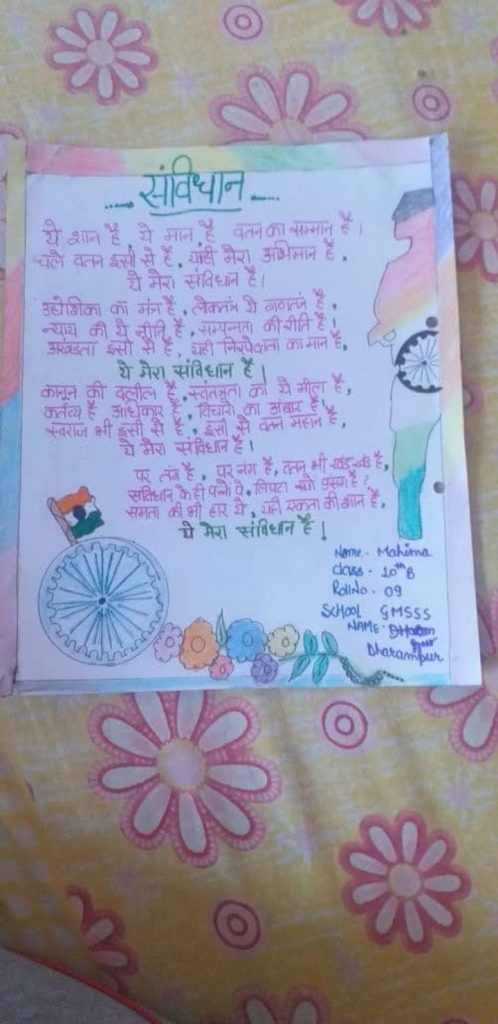 संविधान
ये शान है, ये मान है वतन का सम्मान है।
चले वतन इसी से है, यही मेरा अभिमान है,
ये मेरा संविधान है।
उद्देशिका का मंत्र है, लोकतंत्र ये गणतंत्र है,
न्याय की ये नीति है, सम्पन्नता की रीति है।
अखंडता इसी से है, यही निरपेक्षता का मान है,
ये मेरा संविधान है।
कानून की दलील है, स्वतंत्रता का ये मील है,
कर्तव्य है अधिकार है, विचारों का अंबार है।
स्वराज भी इसी से है, इसी से वतन महान है,
ये मेरा संविधान है।
पर तंत्र है, पर रंग है, वतन भी खंड खंड है,
संविधान के ही पन्नो पे, लिपटा सभी है।
समता की भी हार ये, यही एकता की शान है,
ये मेरा संविधान है।
Name - Mahima
Class - 10th B
Roll No - 09
SCHOOL GMSSS
NAME - Dharampur